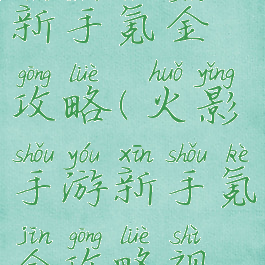 新手氪金
gōng lüè huǒ yǐng
攻略(火影
shǒu yóu xīn shǒu kè
手游新手氪
jīn gōng lüè shì
金攻略视